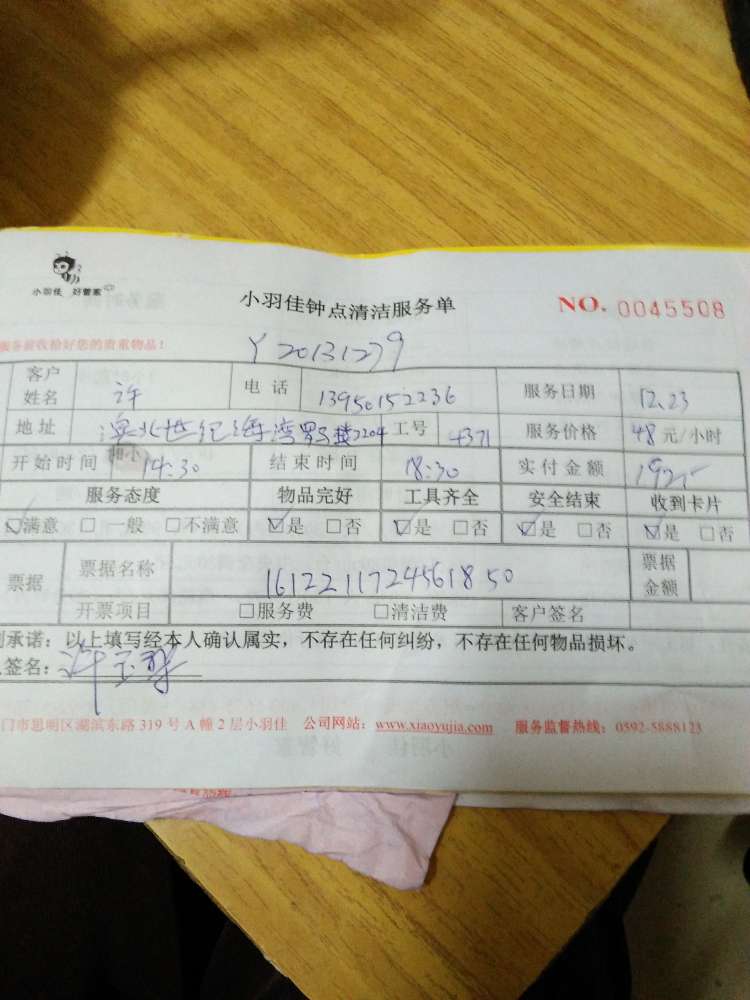 小羽佳 好管家
小羽佳钟点清洁服务单 NO. 0045508
服务前收拾好您的贵重物品!
Y20131279
客户姓名 许 电话 13950152236 服务日期 12.23
地址 世纪海湾 2204 工号 4371 服务价格 48元/小时
开始时间 14:30 结束时间 18:30 实付金额 192
服务态度 物品完好 工具齐全 安全结束 收到卡片
☑满意 □一般 □不满意 ☑是 □否 ☑是 □否 ☑是 □否 ☑是 □否
票据 票据名称 16122117245618 50 票据金额
开票项目 □服务费 □清洁费 客户签名
承诺:以上填写经本人确认属实,不存在任何纠纷,不存在任何物品损坏。
签名: 许
门市思明区湖滨东路319号A幢2层小羽佳 公司网站:www.xiaoyujia.com 服务监督热线:0592-5888123